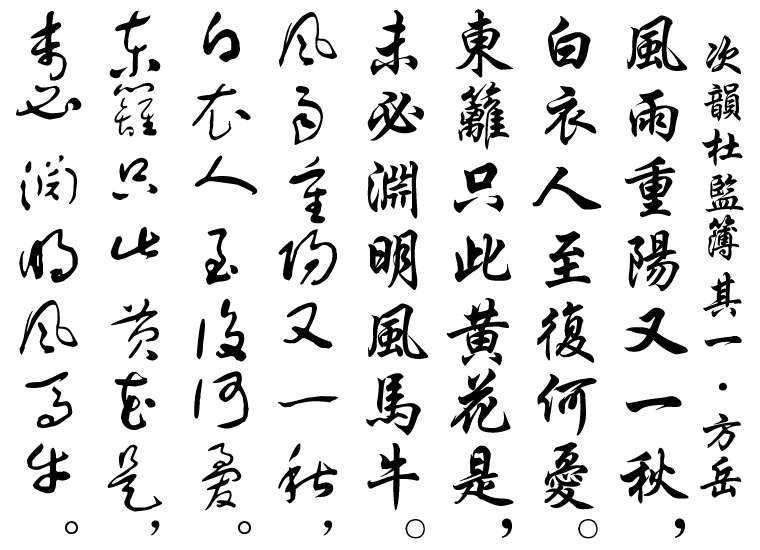 次韻杜監簿其一·方岳
風雨重陽又一秋，
白衣人至復何憂。
東籬只此黃花是，
未必淵明風馬牛。
風雨重陽又一秋，
白衣人至復何憂。
東籬只此黃花是，
未必淵明風馬牛。